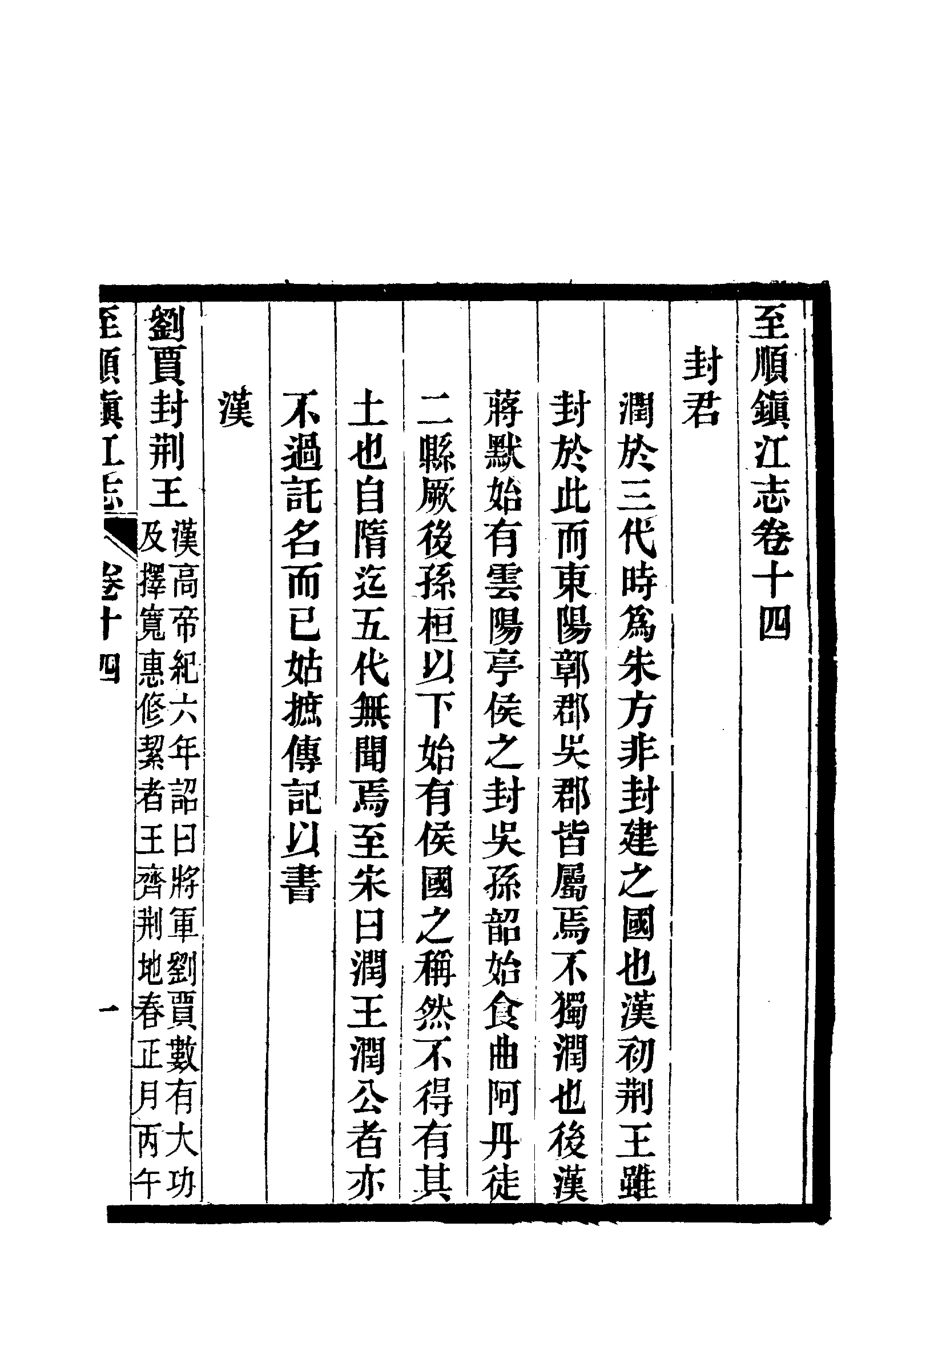 至順鎮江志卷十四
封君
潤於三代時爲朱方非封建之國也漢初荆王雖
封於此而東陽鄣郡吳郡皆屬焉不獨潤也後漢
蔣默始有雲陽亭侯之封吳孫韶始食曲阿丹徒
二縣厥後孫桓以下始有侯國之稱然不得有其
土也自隋迄五代無聞焉至宋曰潤王潤公者亦
不過託名而已姑摭傳記以書
漢
劉賈封荆王
漢高帝紀六年詔曰將軍劉賈數有大功
及擇寬惠修絜者王齊荆地春正月丙午
至順鎮江志
卷十四
一